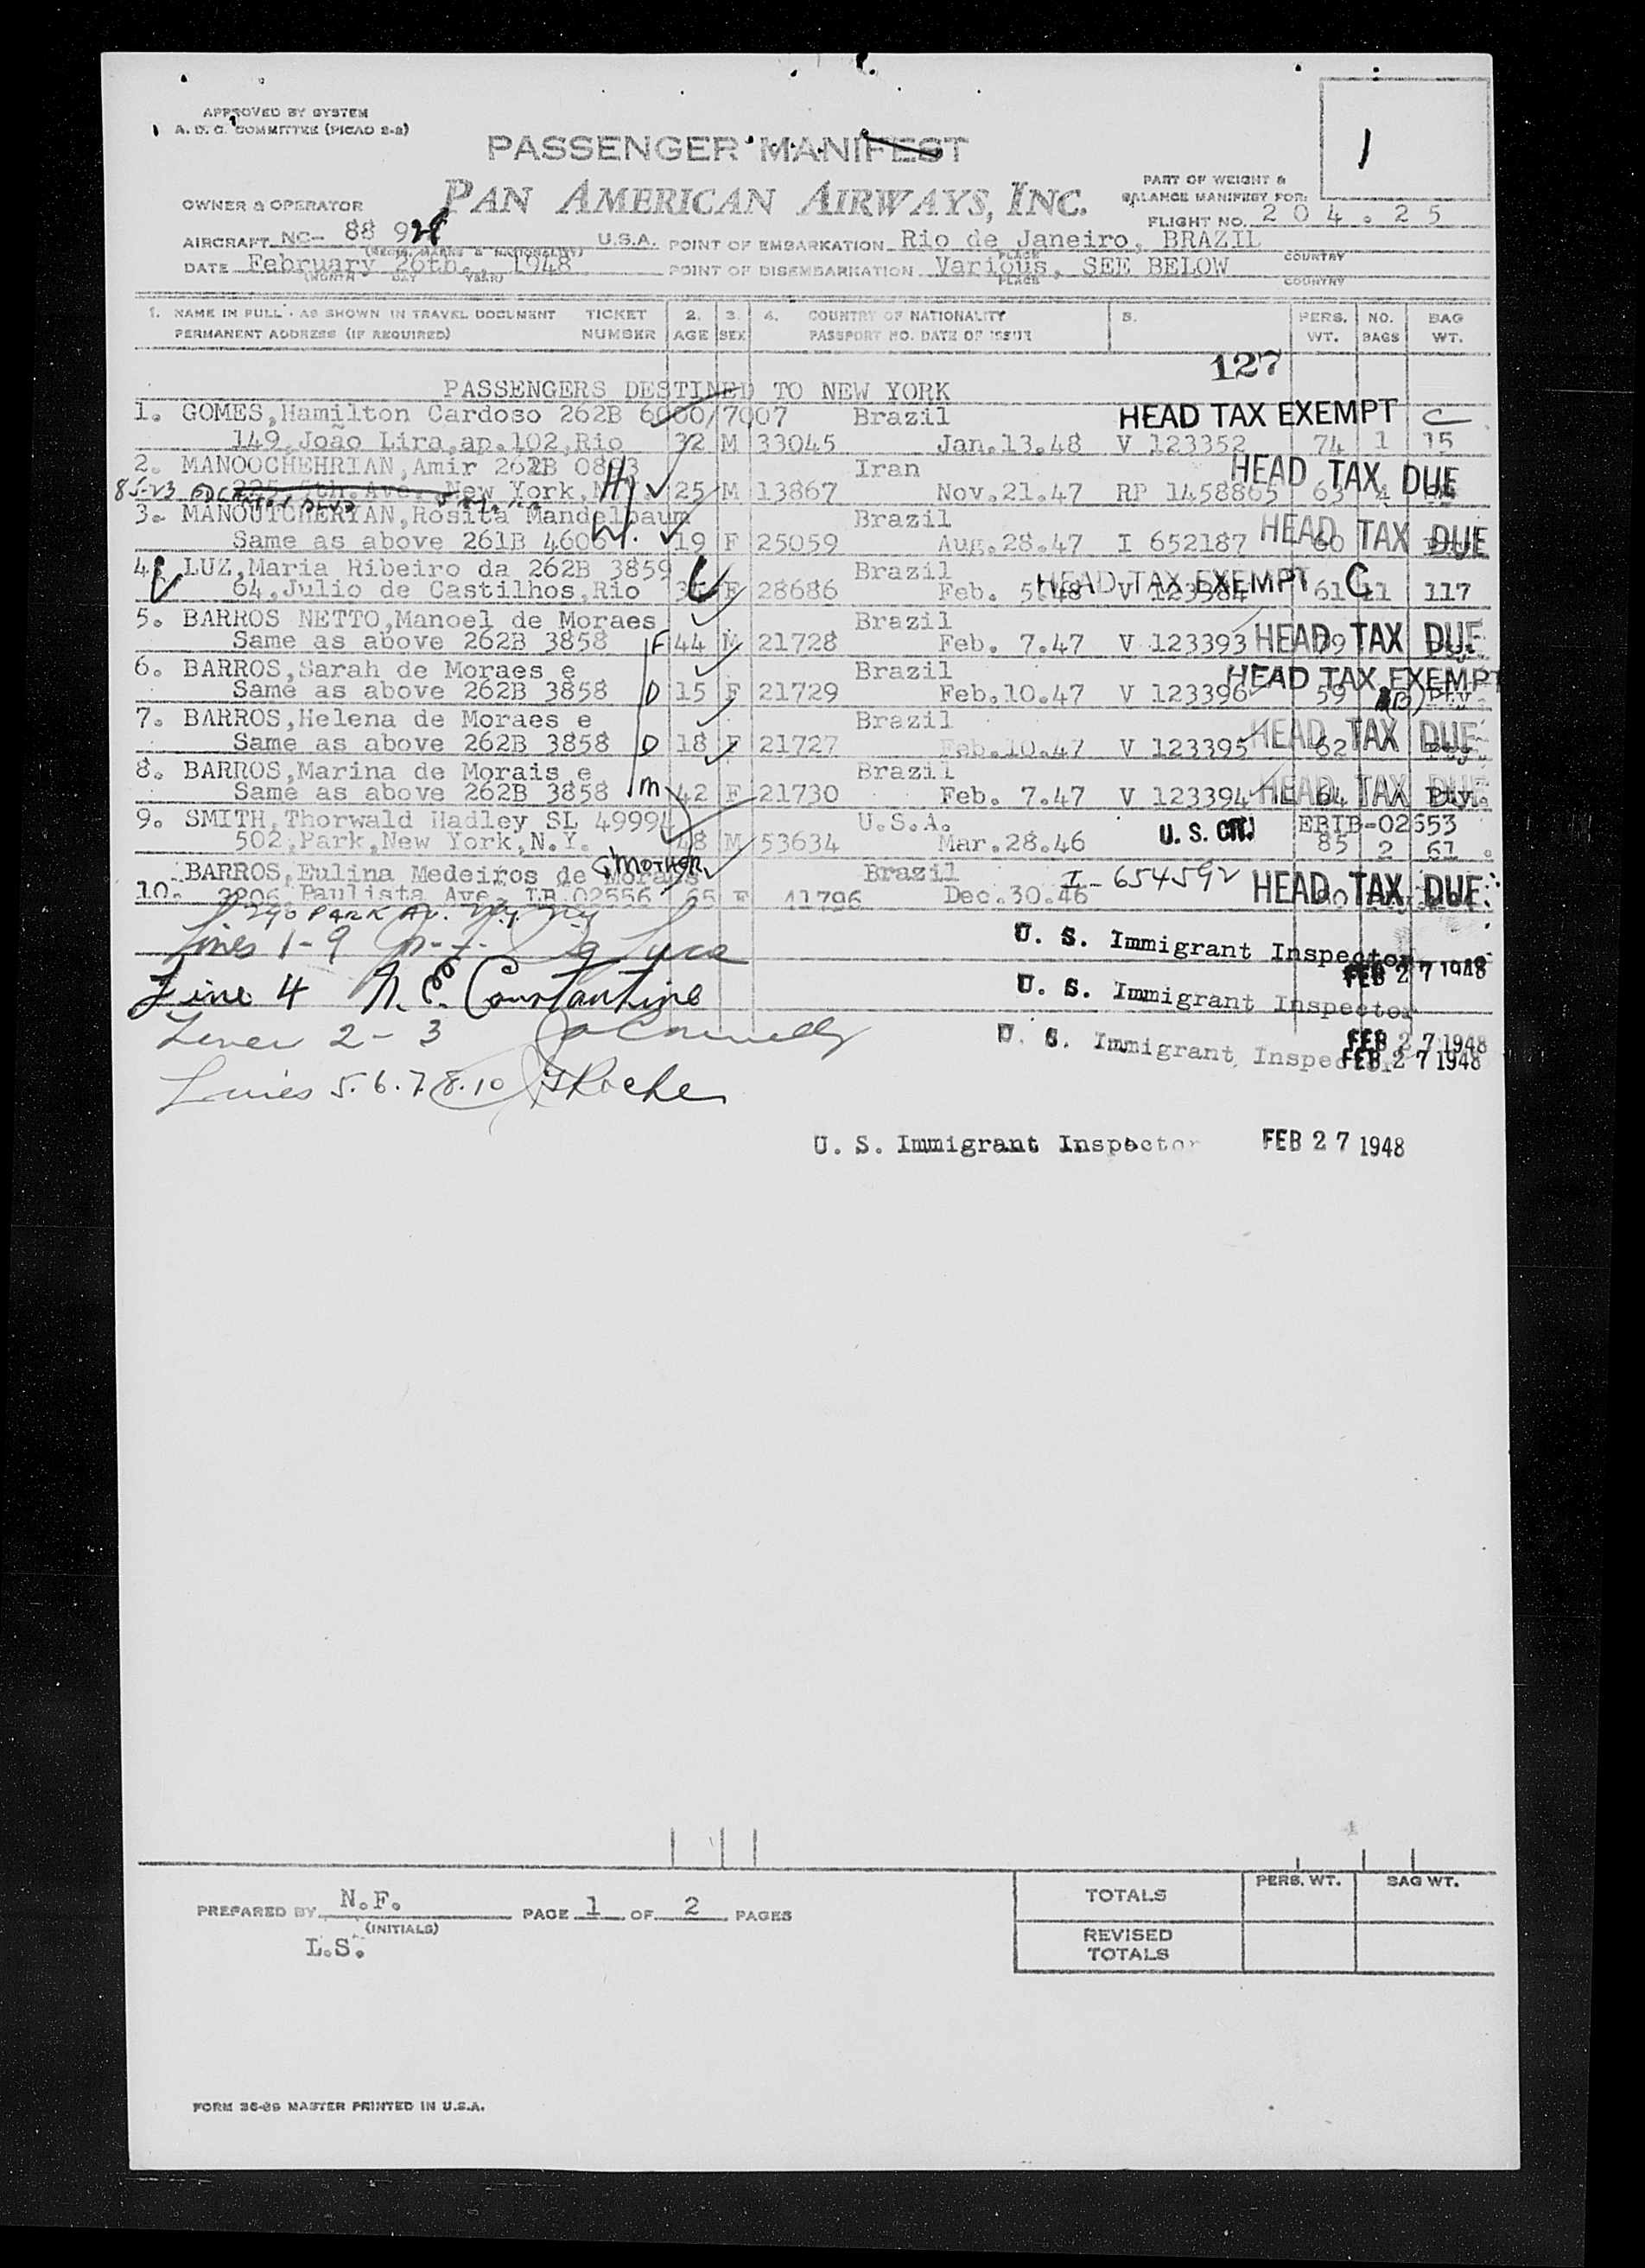 APPROVED BY SYSTEM
A. D. C. COMMITTEE (PICAO 2-2)
1
PASSENGER MANIFEST
PAN AMERICAN AIRWAYS, INC.
PART OF WEIGHT &
BALANCE MANIFEST FOR:
OWNER & OPERATOR
FLIGHT NO. 204.25
AIRCRAFT NC- 88 928 U.S.A. POINT OF EMBARKATION Rio de Janeiro, BRAZIL
(REGIS. MARKS & NATIONALITY) PLACE COUNTRY
DATE February 26th., 1948 POINT OF DISEMBARKATION Various, SEE BELOW
(MONTH DAY YEAR) PLACE COUNTRY
1. NAME IN FULL - AS SHOWN IN TRAVEL DOCUMENT TICKET 2. 3. 4. COUNTRY OF NATIONALITY 5. PERS. NO. BAG
PERMANENT ADDRESS (IF REQUIRED) NUMBER AGE SEX PASSPORT NO. DATE OF ISSUE WT. BAGS WT.
127
PASSENGERS DESTINED TO NEW YORK
1. GOMES,Hamilton Cardoso 262B 6000/7007 Brazil HEAD TAX EXEMPT C
149,João Lira,ap.102,Rio 32 M 33045 Jan.13.48 V 123352 74 1 15
2. MANOOCHEHRIAN,Amir 262B 0803 Iran HEAD TAX DUE
85-23 225 5th.Ave. New York,N.Y. H 25 M 13867 Nov.21.47 RP 1458865 63 4
3. MANOUTCHERIAN,Rosita Mandelbaum Brazil HEAD TAX DUE
Same as above 261B 4606 W. 19 F 25059 Aug.28.47 I 652187 60
4. LUZ,Maria Ribeiro da 262B 3859 Brazil HEAD TAX EXEMPT C
64,Julio de Castilhos,Rio F 28686 Feb. 5.48 V 123384 61 11 117
5. BARROS NETTO,Manoel de Moraes Brazil
Same as above 262B 3858 F 44 M 21728 Feb. 7.47 V 123393 HEAD TAX DUE
6. BARROS,Sarah de Moraes e Brazil HEAD TAX EXEMPT
Same as above 262B 3858 D 15 F 21729 Feb.10.47 V 123396 59 Pty.
7. BARROS,Helena de Moraes e Brazil HEAD TAX DUE
Same as above 262B 3858 D 18 F 21727 Feb.10.47 V 123395 62
8. BARROS,Marina de Morais e Brazil HEAD TAX DUE
Same as above 262B 3858 M 42 F 21730 Feb. 7.47 V 123394 64 Pty.
9. SMITH,Thorwald Hadley SL 49994 U.S.A. U. S. CIT. EBIB-02653
502,Park,New York,N.Y. 48 M 53634 Mar.28.46 85 2 61
BARROS,Eulina Medeiros de Moraes G'MOTHER Brazil I-654592 HEAD TAX DUE
10. 2206 Paulista Ave. IB 02556 65 F 41796 Dec.30.46
290 PARK AV. NY NY
Lines 1-9 De Luca U. S. Immigrant Inspector
FEB 27 1948
Line 4 N. E. Constantine U. S. Immigrant Inspector
FEB 27 1948
Lines 2-3 Connelly U. S. Immigrant Inspector
FEB 27 1948
Lines 5.6.7.8.10 Roche
U. S. Immigrant Inspector FEB 27 1948
PREPARED BY N.F. PAGE 1 OF 2 PAGES
(INITIALS)
L.S.
PERS. WT. BAG WT.
TOTALS
REVISED
TOTALS
FORM 36-29 MASTER PRINTED IN U.S.A.